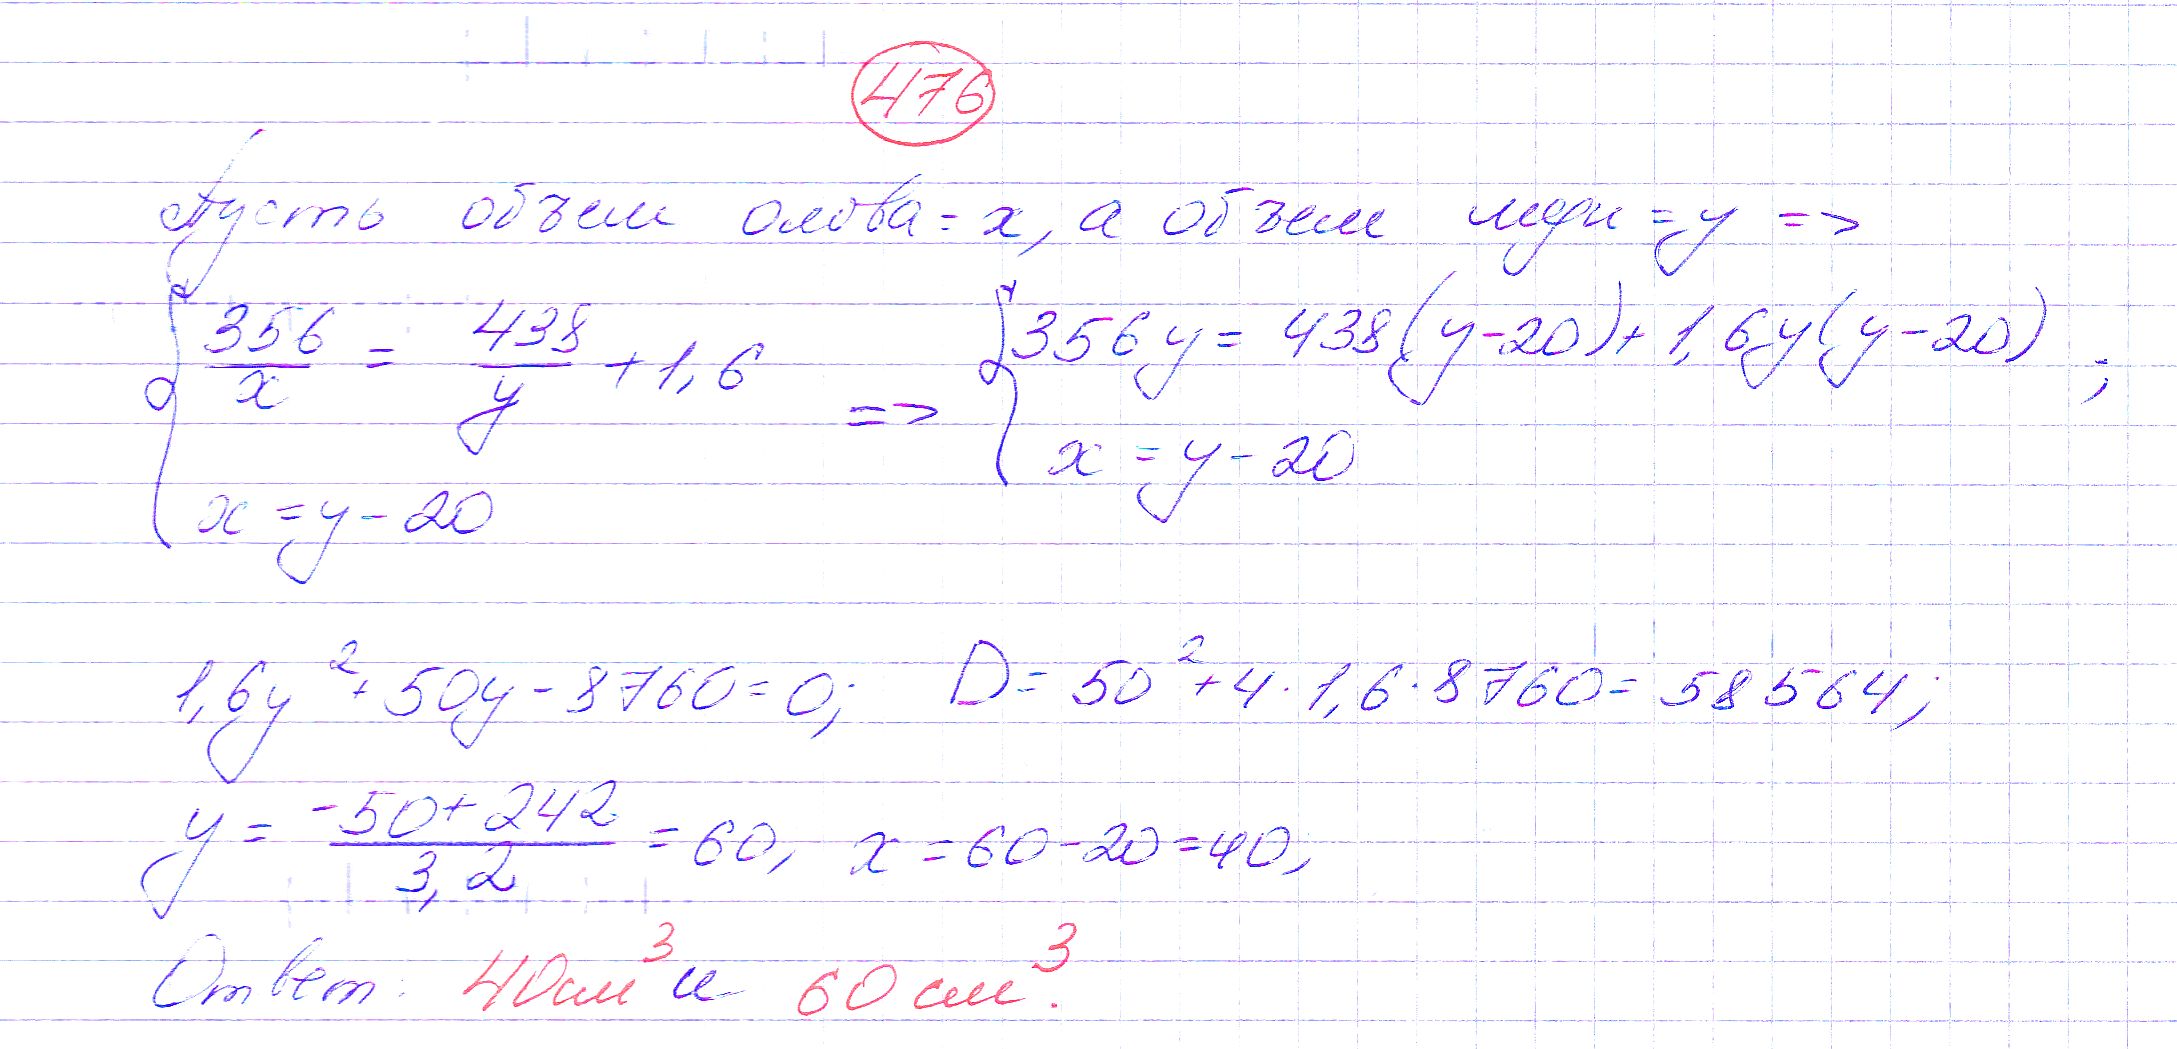 476
Пусть объем олова = x, а объем меди = y =>
{ 356/x = 438/y + 1,6 => { 356y = 438(y-20) + 1,6y(y-20) ;
x = y - 20 x = y - 20
1,6y² + 50y - 8760 = 0; D = 50² + 4·1,6·8760 = 58564;
y = (-50 + 242)/3,2 = 60, x = 60 - 20 = 40,
Ответ: 40 см³ и 60 см³.